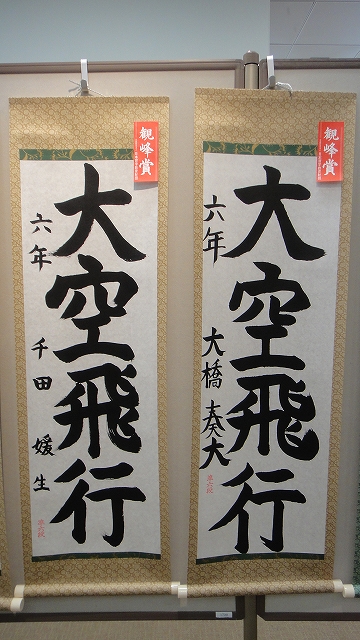 観峰賞
大空飛行
六年 千田 媛生
観峰賞
大空飛行
六年 大橋 奏大